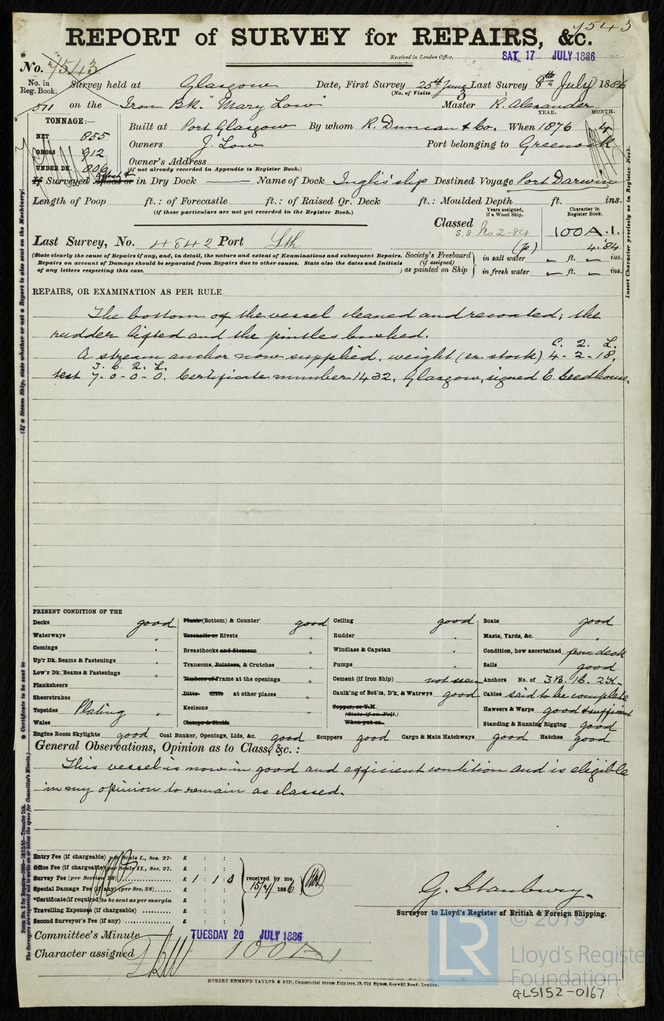 7543
REPORT of SURVEY for REPAIRS, &c.
Received in London Office, SAT. 17 JULY 1886
No. 7543
No. in Reg. Book. Survey held at Glasgow Date, First Survey 25th June Last Survey 8th July 1886
(No. of Visits 3)
511 on the Iron Bk. "Mary Low" Master R. Alexander
TONNAGE:— YEAR. MONTH.
NET 855 Built at Port Glasgow By whom R. Duncan & Co. When 1876 4
GROSS 912 Owners J. Low Port belonging to Greenock
UNDER DK. 806 Owner's Address
(if not already recorded in Appendix to Register Book.)
If Surveyed Afloat or in Dry Dock — Name of Dock Inglis' slip Destined Voyage Port Darwin
Length of Poop ft.: of Forecastle ft.: of Raised Qr. Deck ft.: Moulded Depth ft. ins.
(if these particulars are not yet recorded in the Register Book.)
Years assigned, if a Wood Ship. Character in Register Book.
Classed S.S. No 2-84 100 A.1.
Last Survey, No. 4842 Port Lth 4.84
(State clearly the cause of Repairs, if any, and, in detail, the nature and extent of Examinations and subsequent Repairs.
Repairs on account of Damage should be separated from Repairs due to other causes. State also the dates and Initials
of any letters respecting this case.
Society's Freeboard (if assigned) as painted on Ship in salt water — ft. — ins.
in fresh water — ft. — ins.
REPAIRS, OR EXAMINATION AS PER RULE
The bottom of the vessel cleaned and recoated; the
rudder lifted and the pintles bushed.
C. 2. L.
A stream anchor now supplied, weight (ex. stock) 4-2-18,
T. C. 2. L.
test 7-0-0-0. Certificate number 1432, Glasgow, signed
PRESENT CONDITION OF THE
Decks good Plank (Bottom) & Counter good Ceiling good Boats good
Waterways " Treenails or Rivets " Rudder " Masts, Yards, &c. "
Comings " Breasthooks and Stemson " Windlass & Capstan " Condition, how ascertained from deck
Up'r Dk. Beams & Fastenings " Transoms, Pointers, & Crutches " Pumps " Sails good
Low'r Dk. Beams & Fastenings " Timbers of Frame at the openings " Cement (if Iron Ship) not seen Anchors No. of 3B. 1S. 2K.
Planksheers Ditto Ditto at other places " Caulk'g of Bot'm, D'k, & Waterw'ys good Cables said to be complete
Sheerstrakes Keelsons " Copper, or Y.M. Hawsers & Warps good & sufficient
Topsides Plating " Clamps & Shelfs (State if on Felt.) Standing & Running Rigging good
Wales When put on.
Engine Room Skylights good Coal Bunker, Openings, Lids, &c. good Scuppers good Cargo & Main Hatchways good Hatches good
General Observations, Opinion as to Class, &c. :
This vessel is now in good and efficient condition and is eligible
in my opinion to remain as classed.
Entry Fee (if chargeable) per Scale I., Sec. 27. £ : :
Office Fee (if chargeable) per Scale II., Sec. 27. £ : :
Survey Fee (per Section 28) £ 1 : 1 : 0 received by me,
Special Damage Fee (if any) (per Sec. 28) £ : : 15/7/1886
*Certificate (if required) to be sent as per margin
Travelling Expenses (if chargeable) £ : :
Second Surveyor's Fee (if any) £ : :
G. Stanbury.
Surveyor to Lloyd's Register of British & Foreign Shipping.
Committee's Minute TUESDAY 20 JULY 1886
Character assigned 100 A 1
ROBERT EDMUND TAYLOR & SON, Commercial Steam Printers, 19, Old Street, Goswell Road, London.
(If a Steam Ship, state whether or not a Report is also sent on the Machinery)
* Certificate to be sent to
Insert Character precisely as in Register Book.
© 2019
LR
Lloyd's Register
Foundation
GLS152-0167